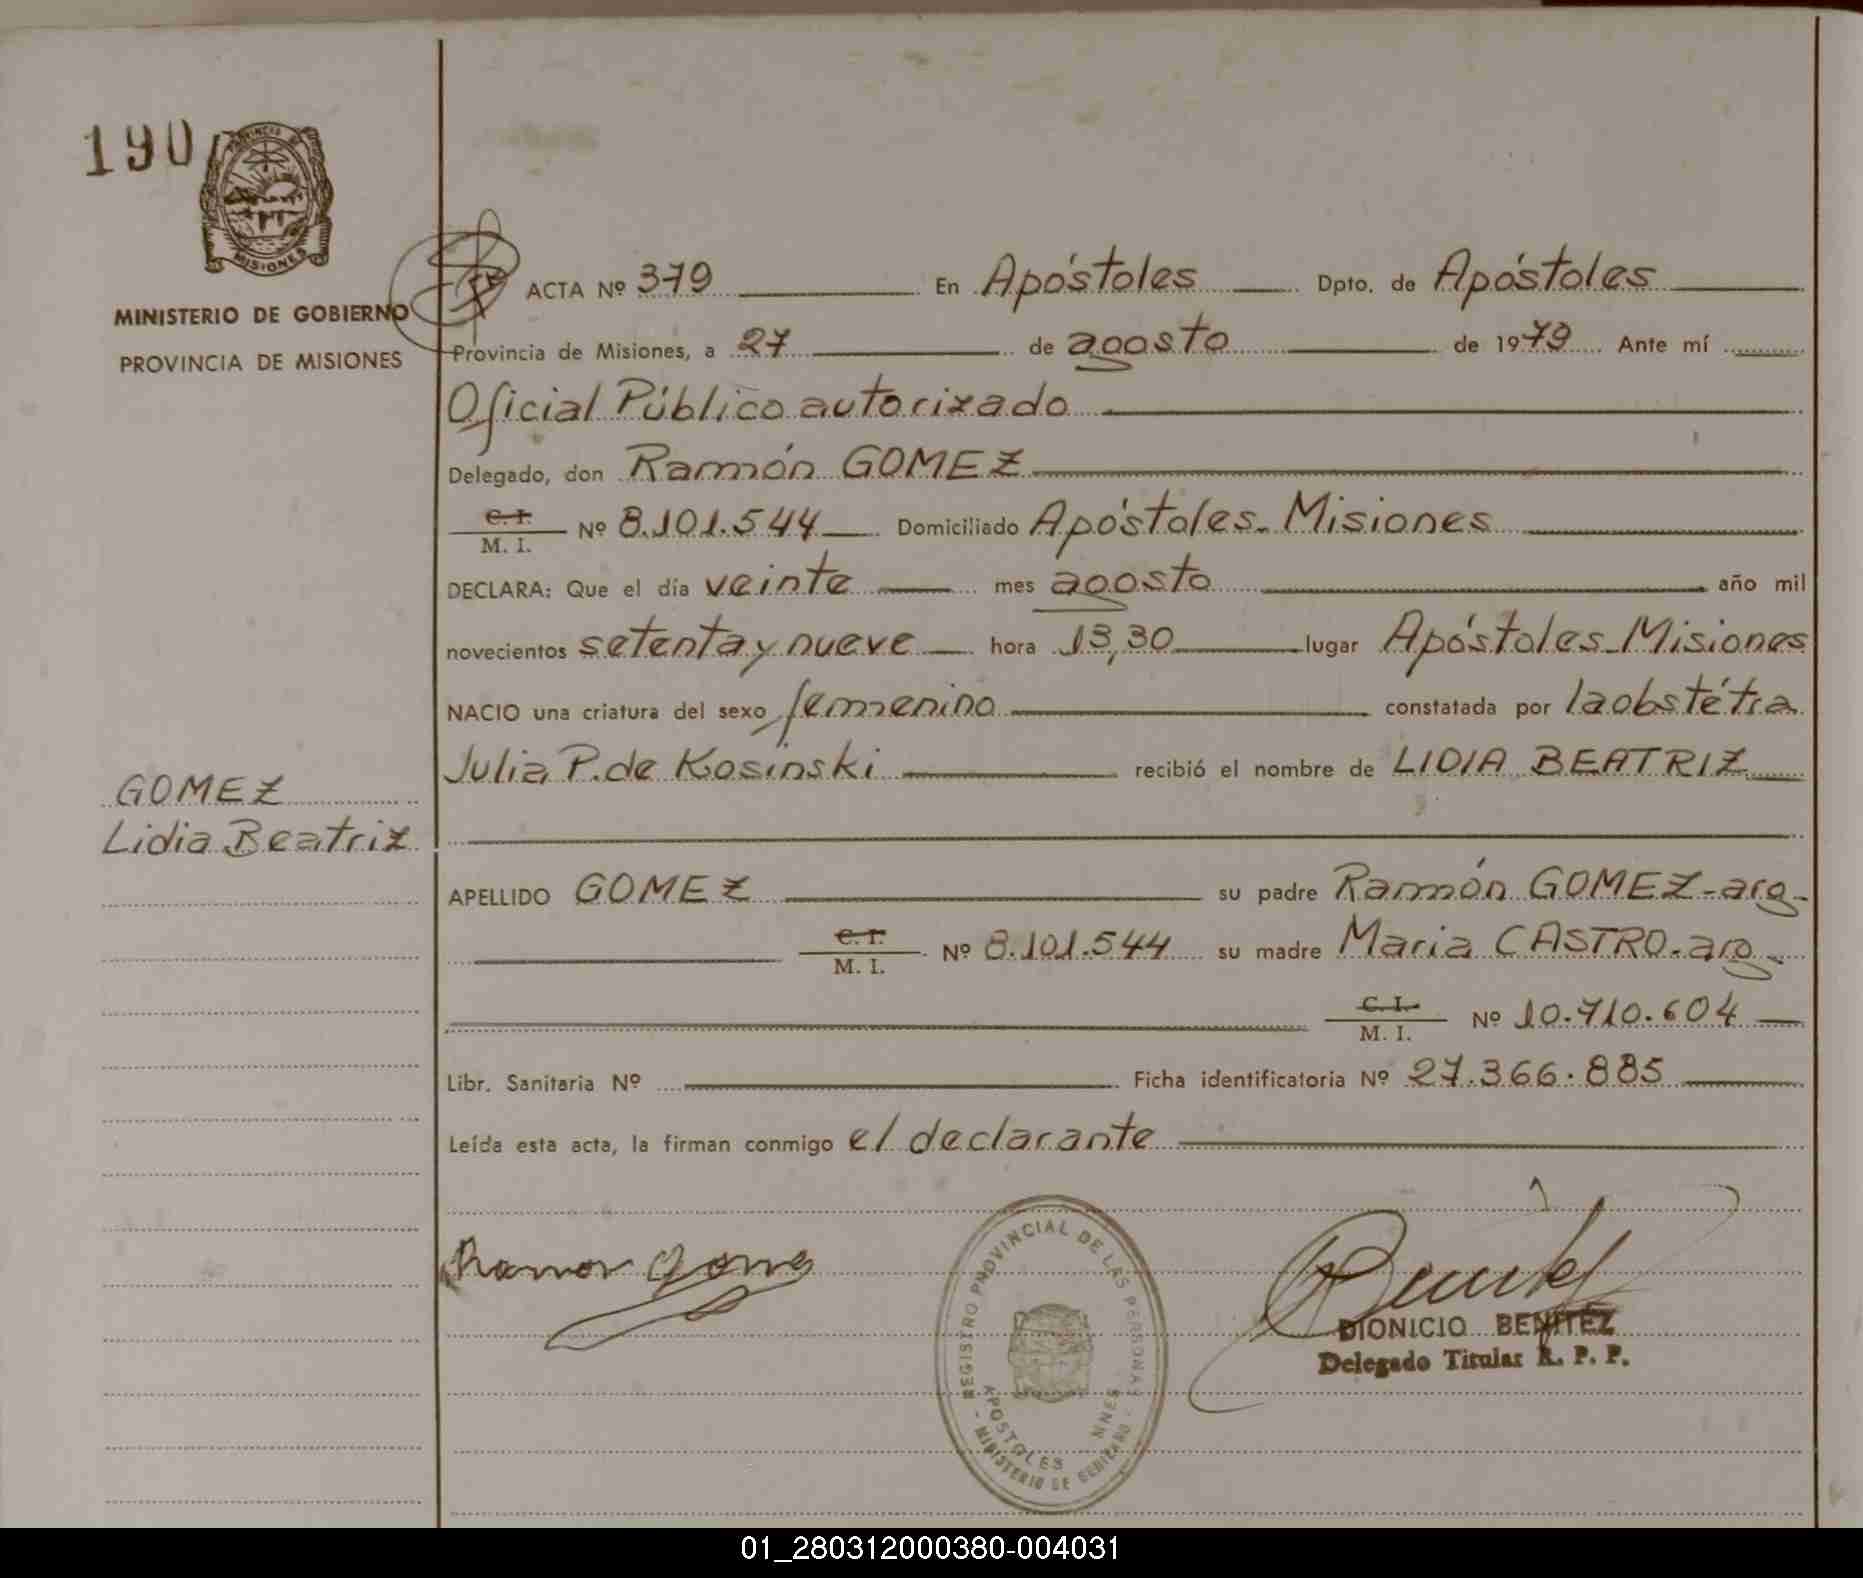 190
PROVINCIA DE
MISIONES
MINISTERIO DE GOBIERNO
PROVINCIA DE MISIONES
ACTA Nº 379 En Apóstoles Dpto. de Apóstoles
Provincia de Misiones, a 27 de agosto de 1979 Ante mí
Oficial Público autorizado
Delegado, don Ramón GOMEZ
C. I.
M. I. Nº 8.101.544 Domiciliado Apóstoles-Misiones
DECLARA: Que el día veinte mes agosto año mil
novecientos setenta y nueve hora 13,30 lugar Apóstoles-Misiones
NACIO una criatura del sexo femenino constatada por la obstétra
Julia P. de Kosinski recibió el nombre de LIDIA BEATRIZ
GOMEZ
Lidia Beatriz
APELLIDO GOMEZ su padre Ramón GOMEZ-arg-
C. I.
M. I. Nº 8.101.544 su madre Maria CASTRO-arg-
C. I.
M. I. Nº 10.710.604
Libr. Sanitaria Nº Ficha identificatoria Nº 27.366.885
Leída esta acta, la firman conmigo el declarante
Ramon Gome
REGISTRO PROVINCIAL DE LAS PERSONAS
APOSTOLES - MNES
- MINISTERIO DE GOBIERNO -
Benitez
DIONICIO BENITEZ
Delegado Titular R. P. P.
01_280312000380-004031